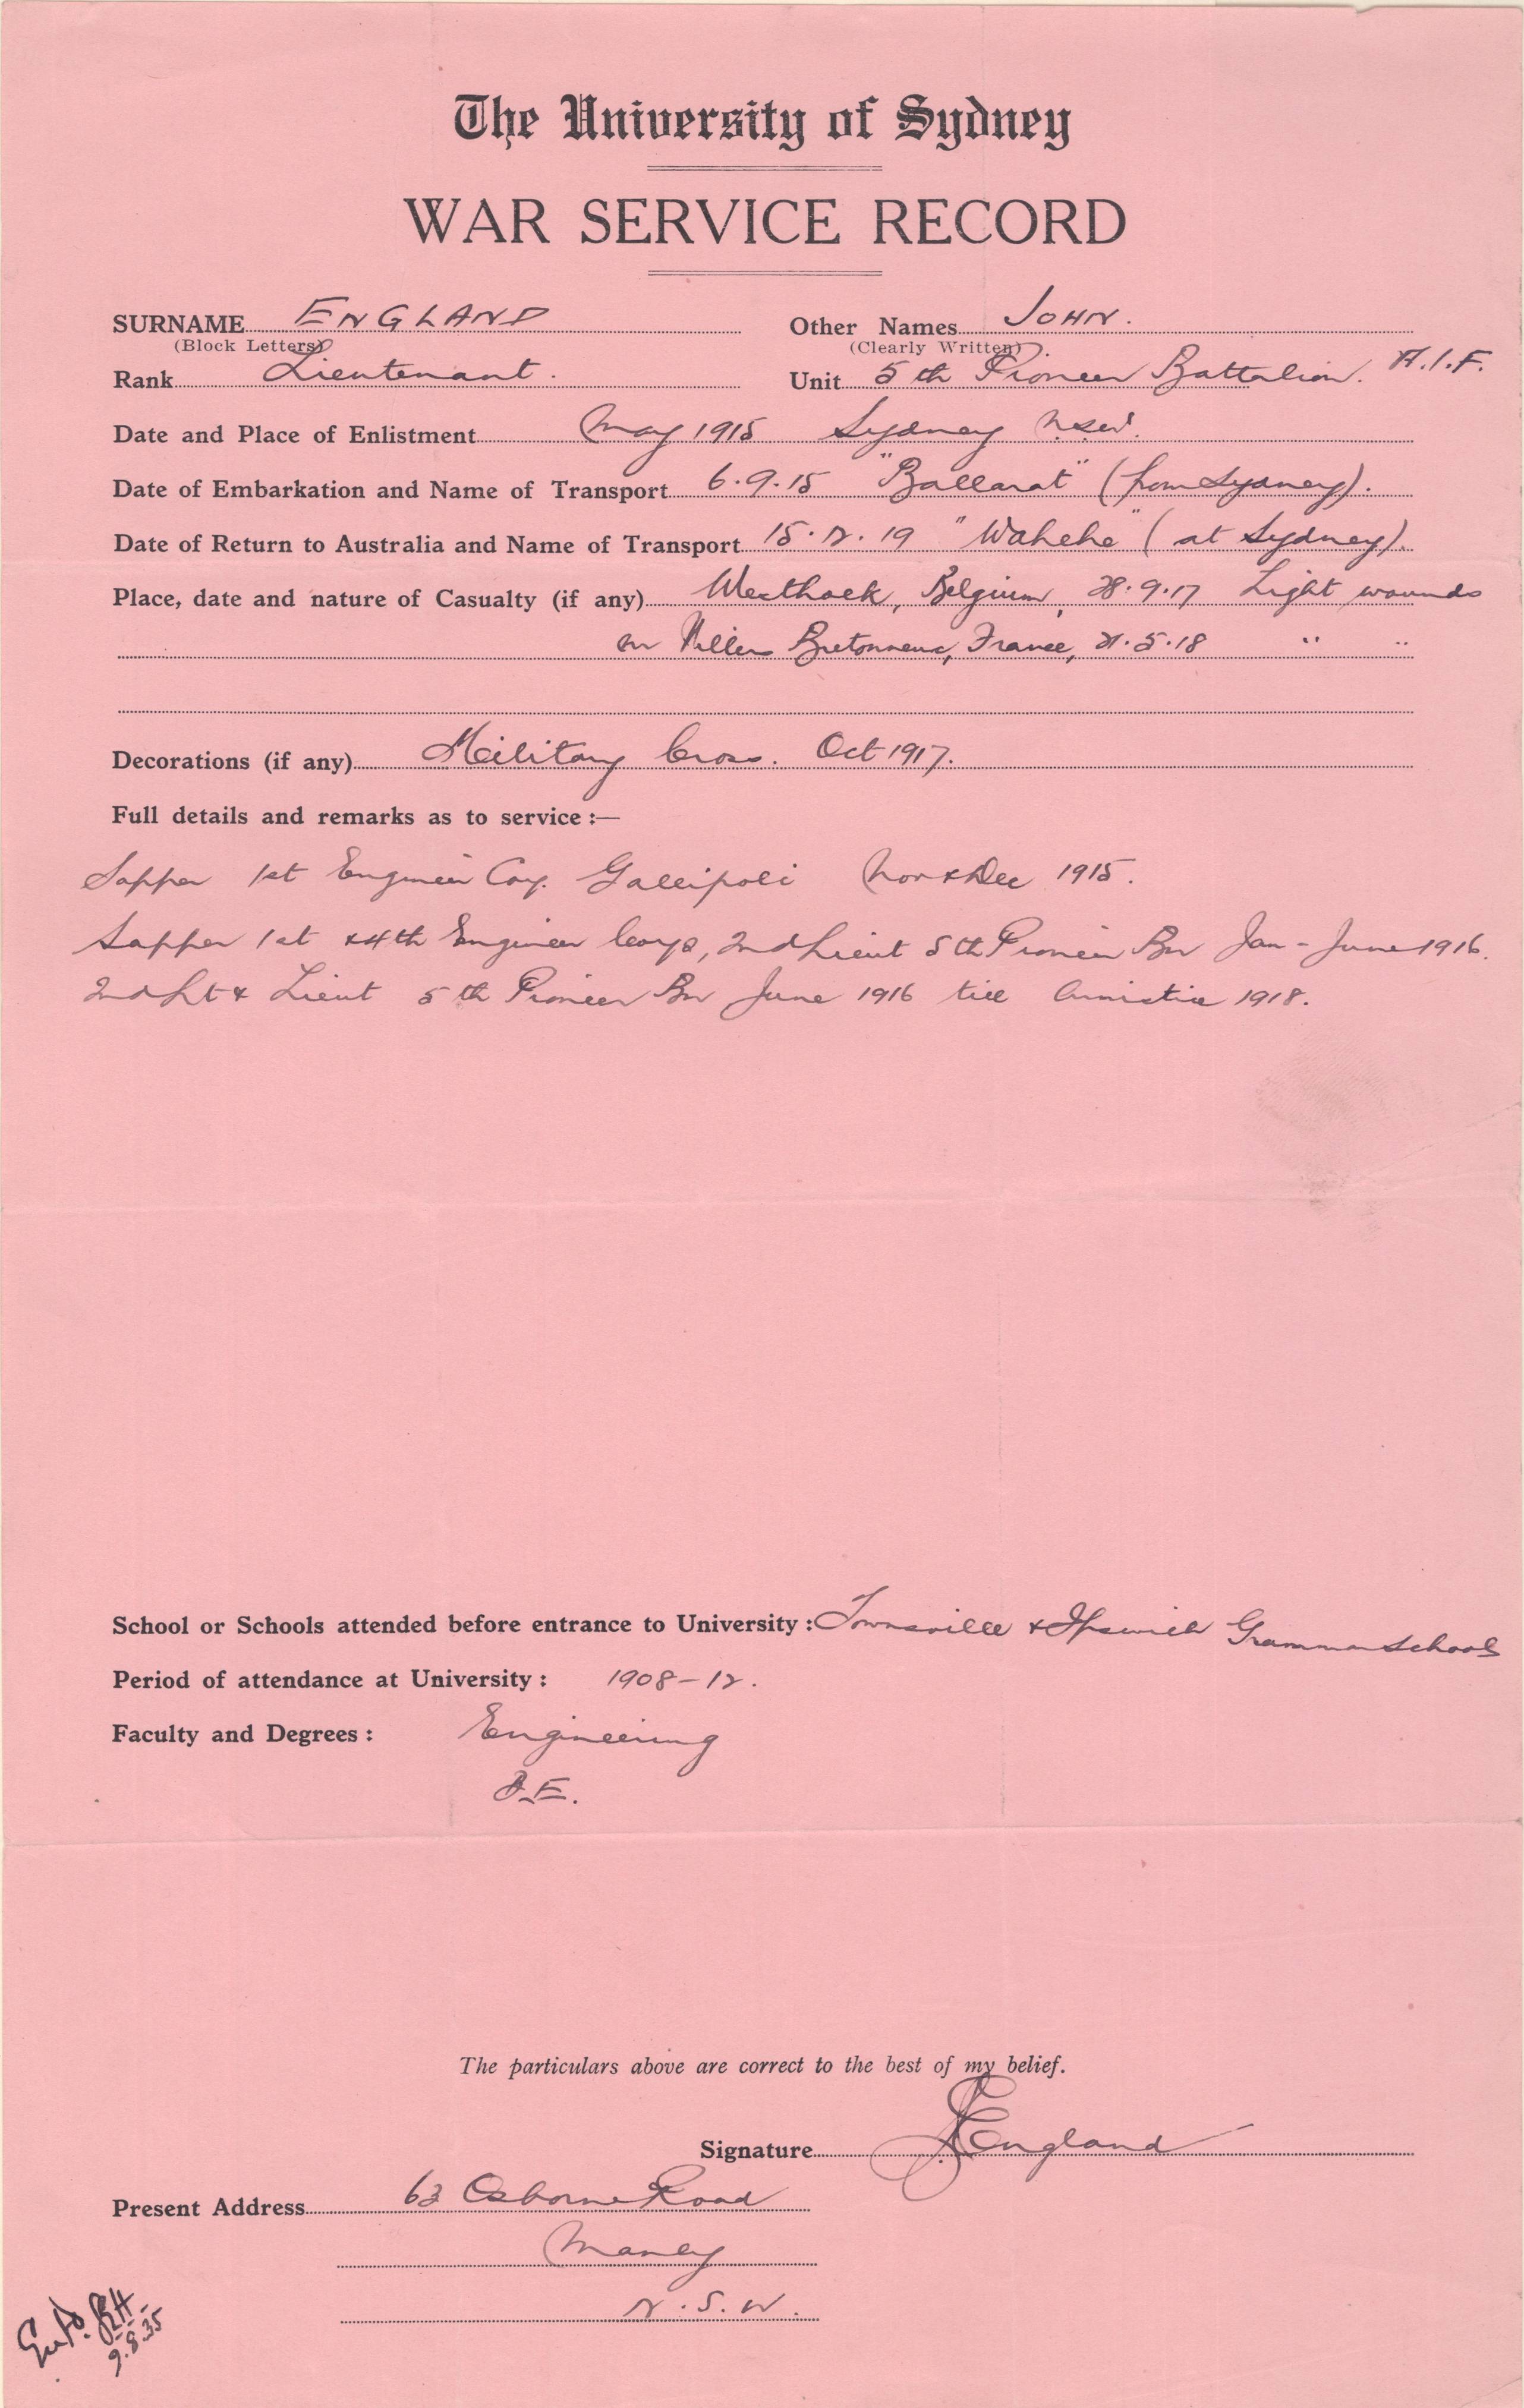 The University of Sydney
WAR SERVICE RECORD
SURNAME ENGLAND Other Names JOHN.
(Block Letters) (Clearly Written)
Rank Lieutenant. Unit 5th Pioneer Battalion. A.I.F.
Date and Place of Enlistment May 1915 Sydney NSW.
Date of Embarkation and Name of Transport 6.9.15 "Ballarat" (from Sydney).
Date of Return to Australia and Name of Transport 15.12.19 "Wahehe" (at Sydney).
Place, date and nature of Casualty (if any) Westhoek, Belgium, 28.9.17 Light wounds
Villers Bretonneux, France, 21.5.18 " "
Decorations (if any) Military Cross. Oct 1917.
Full details and remarks as to service :—
Sapper 1st Engineer Coy. Gallipoli Nov & Dec 1915.
Sapper 1st & 4th Engineer Coys, 2nd Lieut 5th Pioneer Bn Jan - June 1916.
2nd Lt & Lieut 5th Pioneer Bn June 1916 till Armistice 1918.
School or Schools attended before entrance to University : Townsville & Ipswich Grammar Schools
Period of attendance at University : 1908-12.
Faculty and Degrees : Engineering
B.E.
The particulars above are correct to the best of my belief.
Signature J England
Present Address 63 Osborne Road
Manly
N.S.W.
Entd. RH
9.8.35